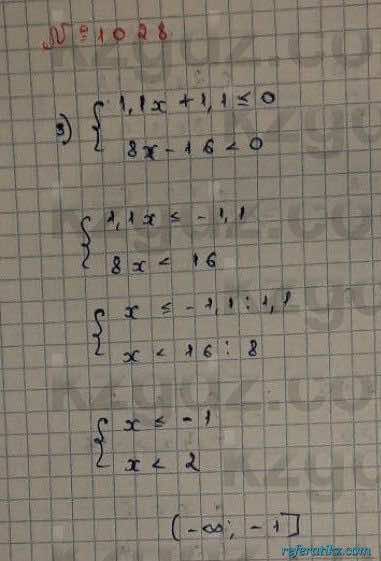 № 1028
3) { 1,1x + 1,1 ≤ 0
8x - 16 < 0
{ 1,1x ≤ -1,1
8x < 16
{ x ≤ -1,1 : 1,1
x < 16 : 8
{ x ≤ -1
x < 2
(-∞; -1]
referatikz.com